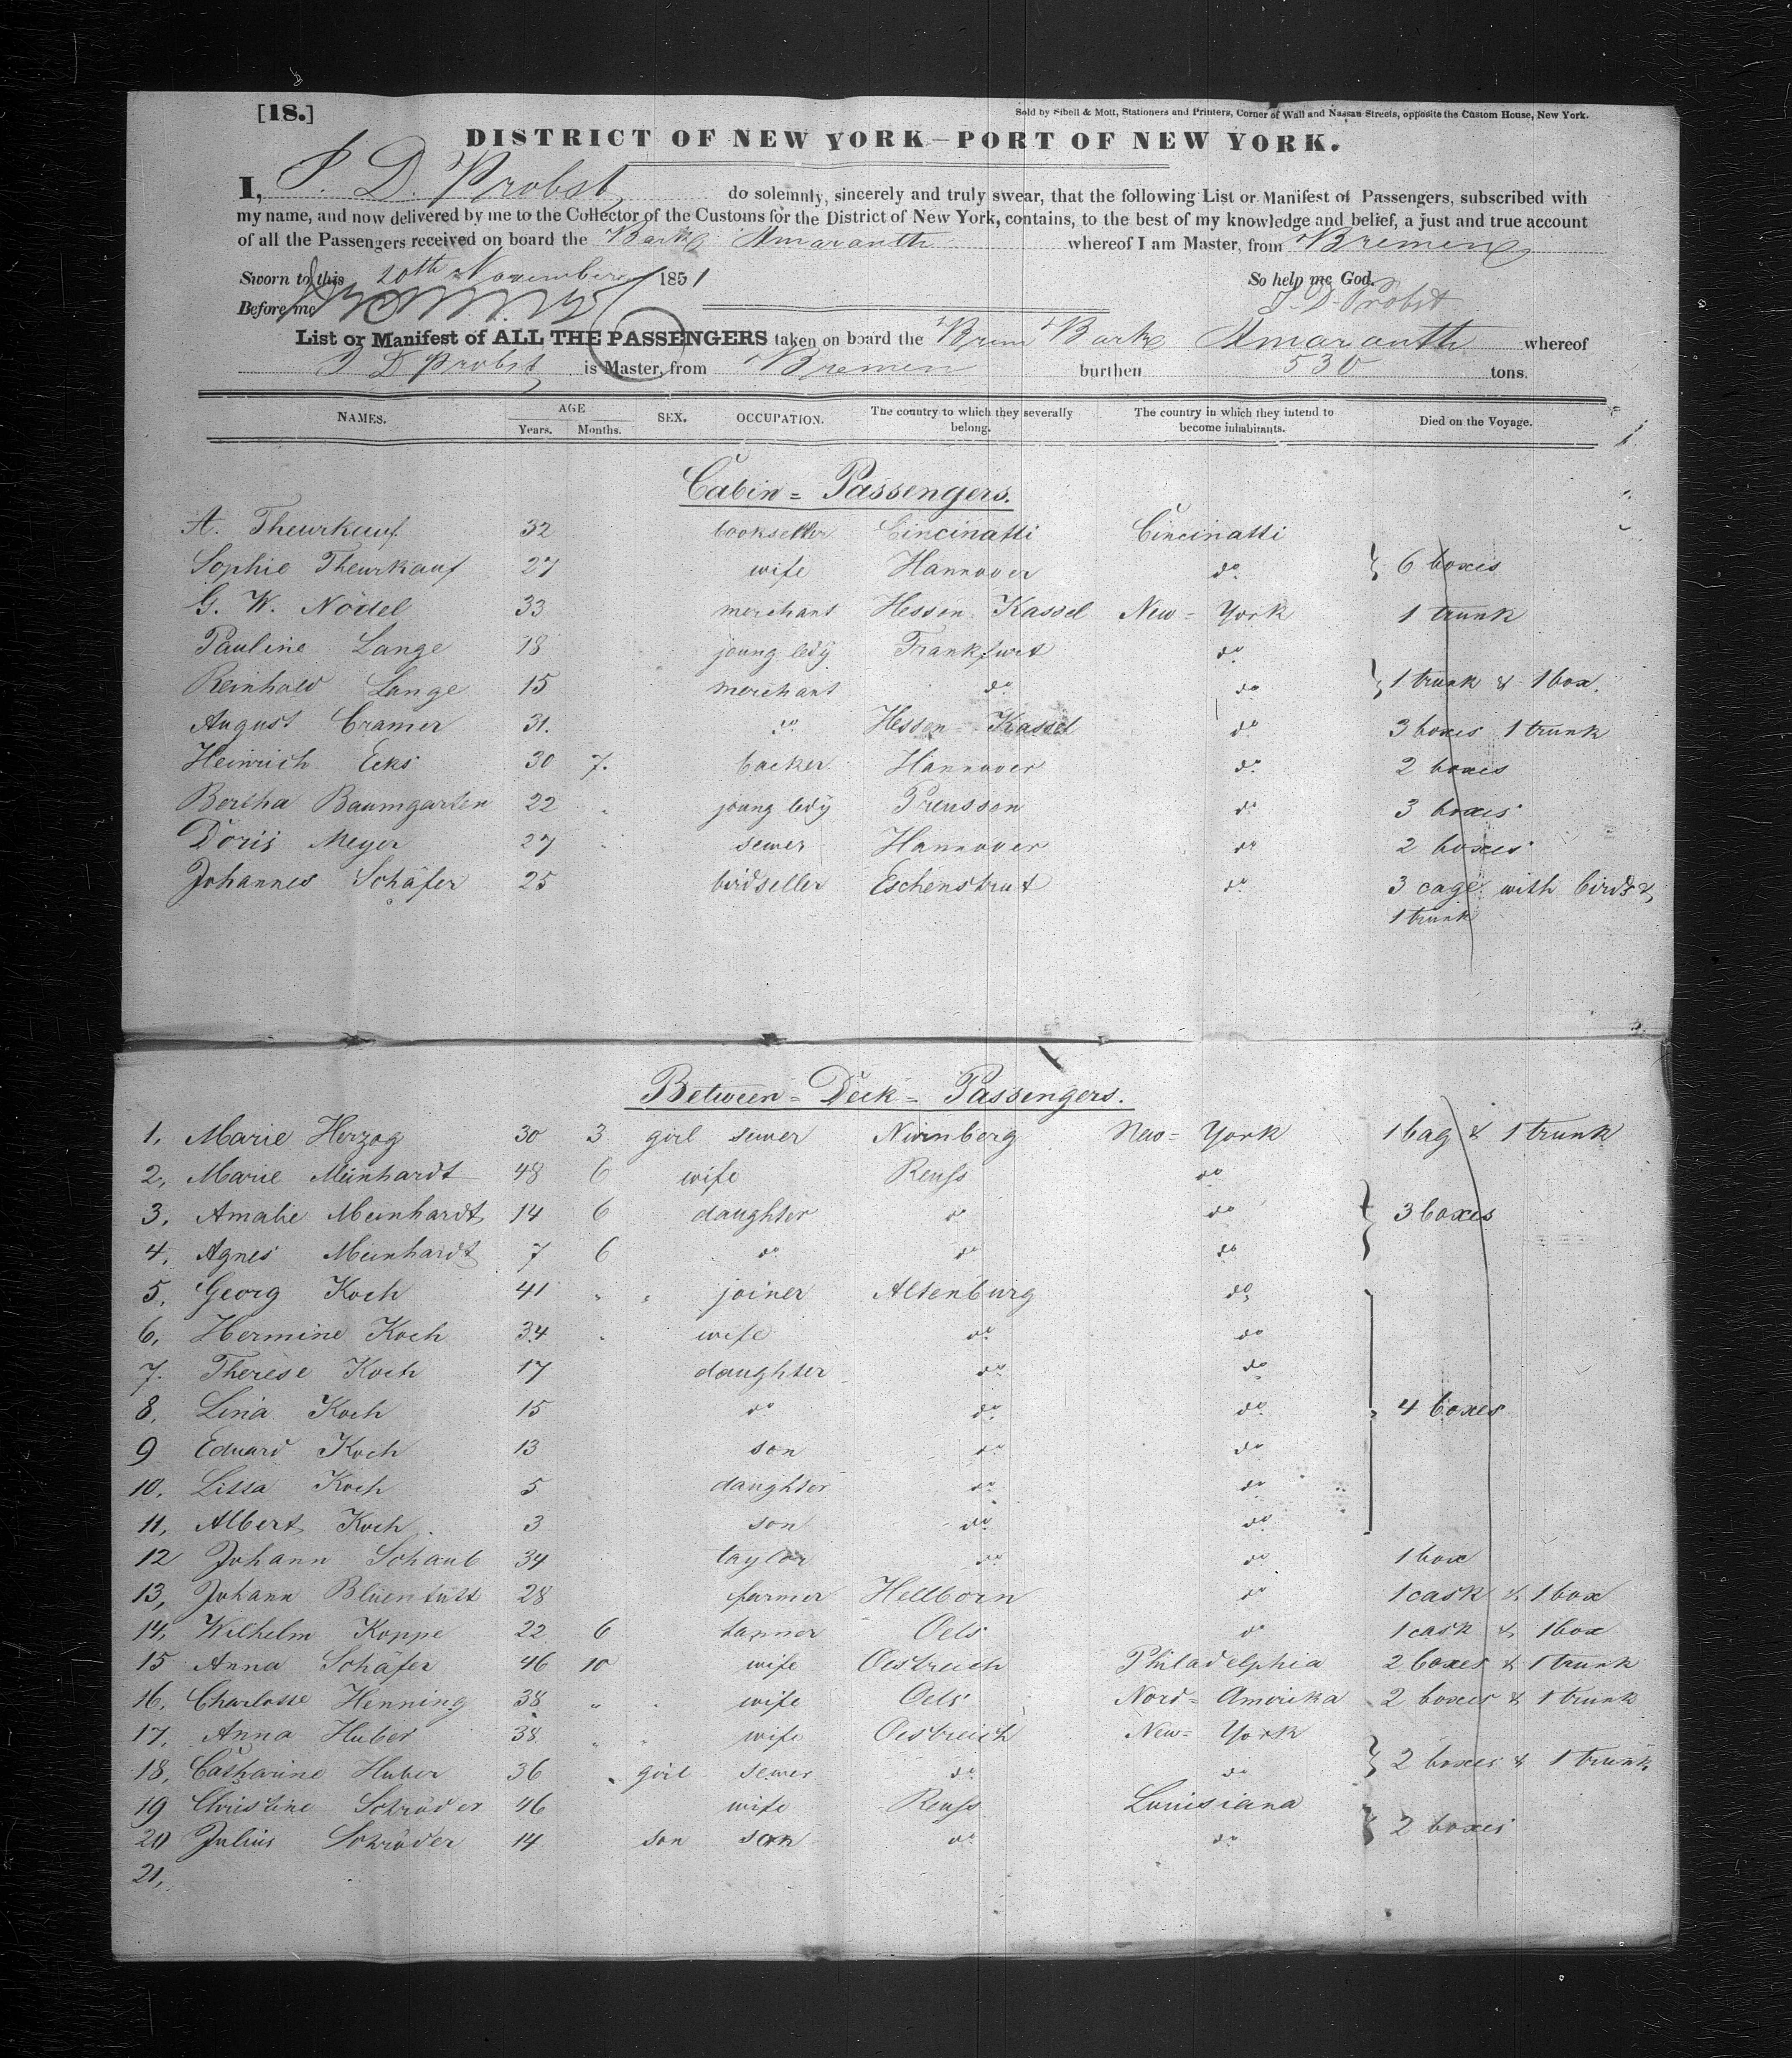 [18.]
Sold by Sibell & Mott, Stationers and Printers, Corner of Wall and Nassau Streets, opposite the Custom House, New York.
DISTRICT OF NEW YORK—PORT OF NEW YORK.
I, J. D. Probst do solemnly, sincerely and truly swear, that the following List or Manifest of Passengers, subscribed with
my name, and now delivered by me to the Collector of the Customs for the District of New York, contains, to the best of my knowledge and belief, a just and true account
of all the Passengers received on board the Bark Amaranth whereof I am Master, from Bremen
Sworn to this 20th November 1851 So help me God.
Before me J. D. Probst
List or Manifest of ALL THE PASSENGERS taken on board the Brem Bark Amaranth whereof
J D Probst is Master, from Bremen burthen 530 tons.
NAMES. AGE Years. Months. SEX. OCCUPATION. The country to which they severally belong. The country in which they intend to become inhabitants. Died on the Voyage.
Cabin = Passengers.
A. Theurkauf 32 bookseller Cincinatti Cincinatti
Sophie Theurkauf 27 wife Hannover do 6 boxes
G. W. Nödel 33 merchant Hessen Kassel New = York 1 trunk
Pauline Lange 18 joung ledy Frankfurt do
Reinhold Lange 15 merchant do do 1 trunk & 1 box.
August Cramer 31. do Hessen = Kassel do 3 boxes 1 trunk
Heinrich Eeks 30 7. backer Hannover do 2 boxes
Bertha Baumgarten 22 joung ledy Preussen do 3 boxes
Doris Meyer 27 sewer Hannover do 2 boxes
Johannes Schäfer 25 birdseller Eschenstrut do 3 cage with birds &
1 trunk
Between = Deck = Passengers.
1, Marie Herzog 30 3 girl sewer Nürnberg New = York 1 bag & 1 trunk
2, Marie Meinhardt 48 6 wife Reuss do
3, Amalie Meinhardt 14 6 daughter do do 3 boxes
4, Agnes Meinhardt 7 6 do do do
5, Georg Koch 41 joiner Altenburg do
6, Hermine Koch 34 wife do do
7. Therese Koch 17 daughter do do
8, Lina Koch 15 do do do 4 boxes
9 Eduard Koch 13 son do do
10, Lissa Koch 5 daughter do do
11, Albert Koch 3 son do do
12 Johann Schaub 34 taylor do do 1 box
13, Johann 28 farmer Hellborn do 1 cask & 1 box
14, Wilhelm Koppe 22 6 tanner Oels do 1 cask & 1 box
15 Anna Schäfer 46 10 wife Oestreich Philadelphia 2 boxes & 1 trunk
16, Charlotte Henning 38 wife Oels Nord = Amerika 2 boxes & 1 trunk
17, Anna Huber 38 wife Oestreich New = York
18, Catharine Huber 36 girl sewer do do 2 boxes & 1 trunk
19 Christine Schröder 46 wife Reuss Louisiana
20 Julius Schröder 14 son son do do 2 boxes
21,